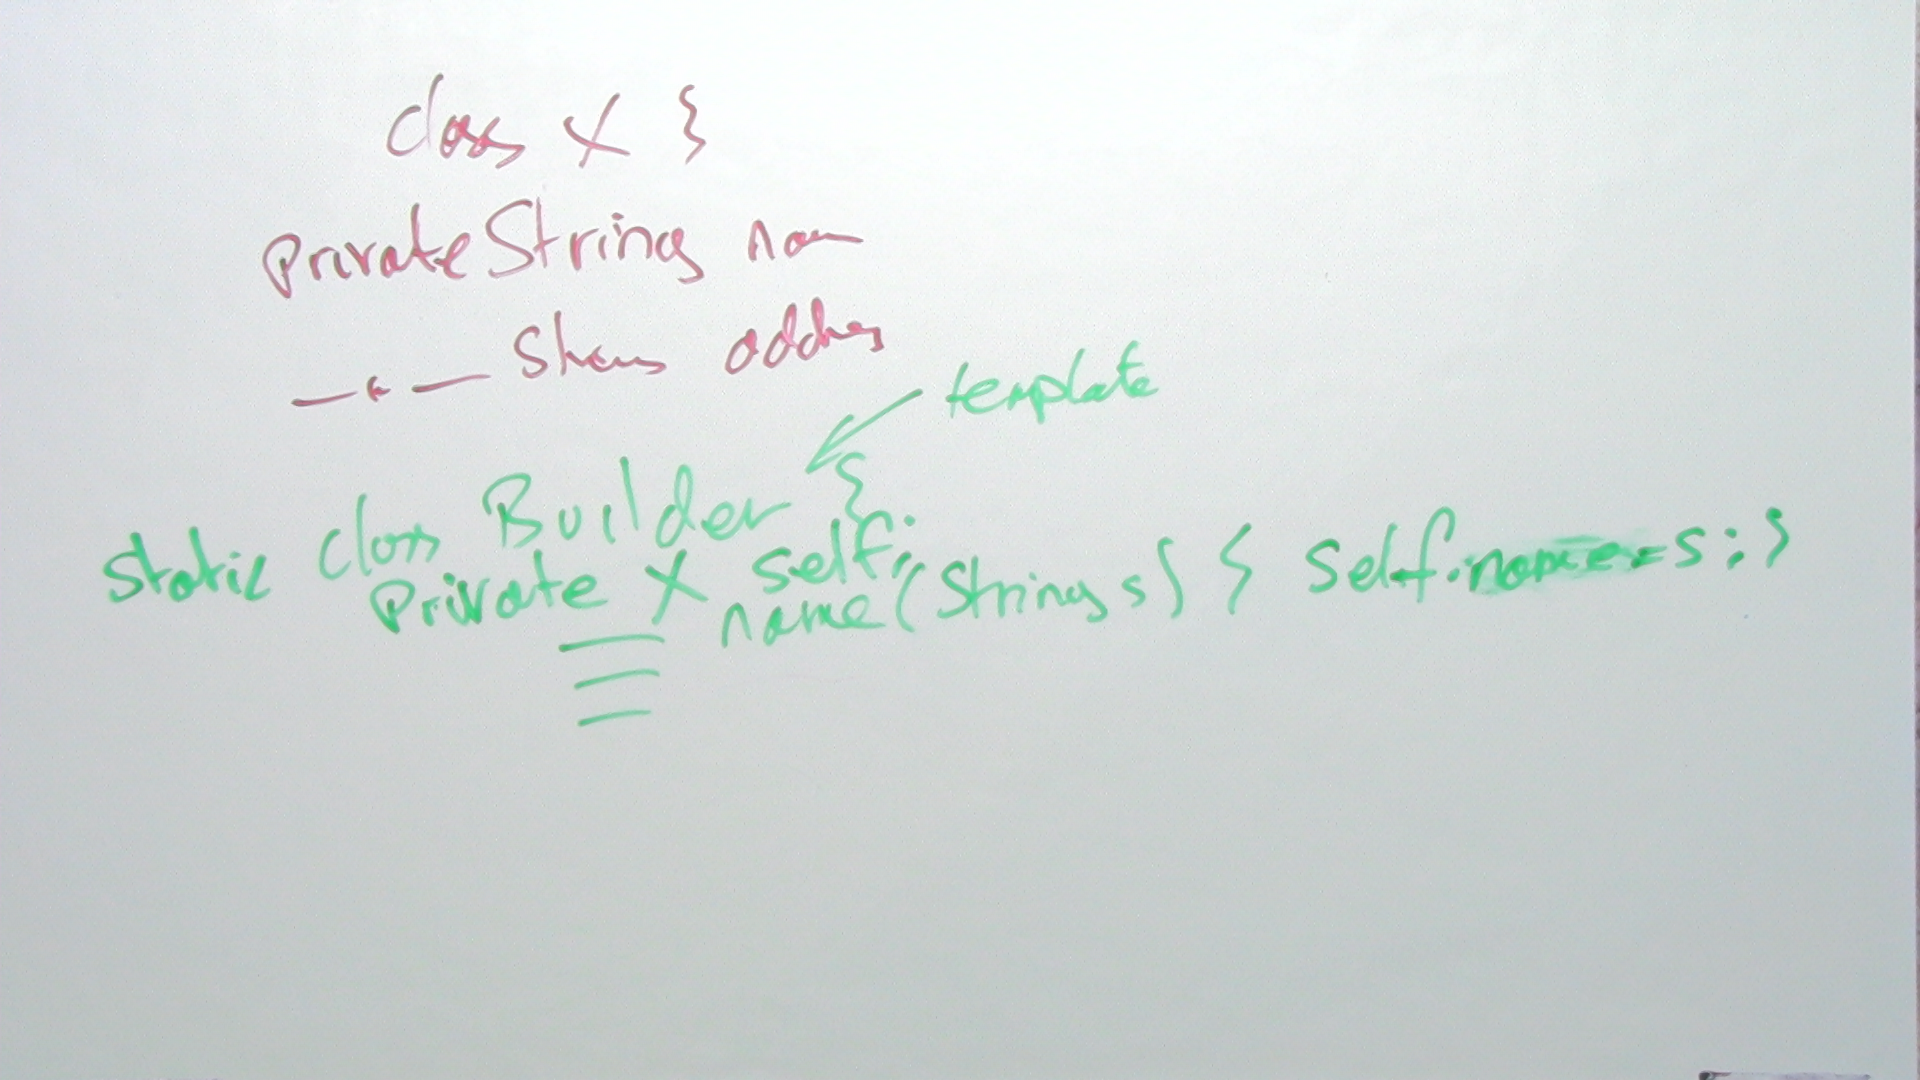 class X {
private String nam
String addres
template
static class Builder {
private X self;
name(String s) { self.name=s; }